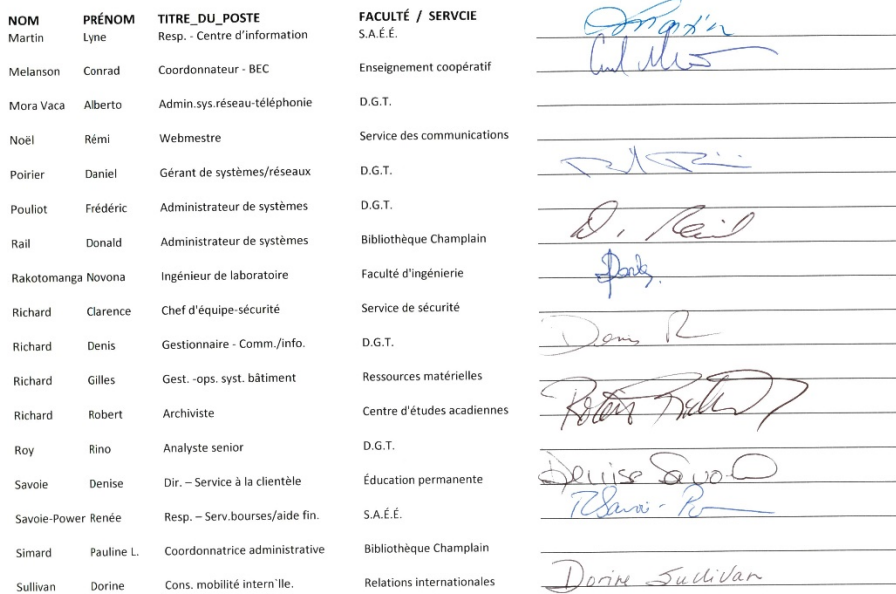 NOM PRÉNOM TITRE_DU_POSTE FACULTÉ / SERVCIE
Martin Lyne Resp. - Centre d'information S.A.É.É. Martin
Melanson Conrad Coordonnateur - BEC Enseignement coopératif
Mora Vaca Alberto Admin.sys.réseau-téléphonie D.G.T.
Noël Rémi Webmestre Service des communications
Poirier Daniel Gérant de systèmes/réseaux D.G.T.
Pouliot Frédéric Administrateur de systèmes D.G.T.
Rail Donald Administrateur de systèmes Bibliothèque Champlain D. Rail
Rakotomanga Novona Ingénieur de laboratoire Faculté d'ingénierie
Richard Clarence Chef d'équipe-sécurité Service de sécurité
Richard Denis Gestionnaire - Comm./info. D.G.T. Denis R
Richard Gilles Gest. -ops. syst. bâtiment Ressources matérielles
Richard Robert Archiviste Centre d'études acadiennes Robert Richard
Roy Rino Analyste senior D.G.T.
Savoie Denise Dir. – Service à la clientèle Éducation permanente Denise Savoie
Savoie-Power Renée Resp. – Serv.bourses/aide fin. S.A.É.É. RSavoie-P
Simard Pauline L. Coordonnatrice administrative Bibliothèque Champlain
Sullivan Dorine Cons. mobilité intern`lle. Relations internationales Dorine Sullivan